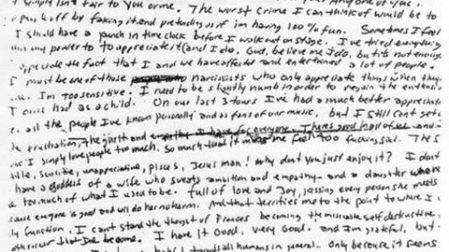 simply isn't fair to you or me. The worst crime I can think of would be to
off by faking it and pretending as if im having 100% fun. Sometimes I feel
I should have a punch in time clock before I walk out on stage. I've tried everything
my power to to appreciate it (and I do. God, believe me I do, but its not enough.
appreciate the fact that I and we have affected and entertained a lot of people.
I must be one of those narcissists who only appreciate things when they
Im Too sensitive. I need to be slightly numb in order to regain the enthusiasm
I once had as a child. On our last 3 tours I've had a much better appreciation
all the people I've known personally and as fans of our music, but I still can't get
frustration, the
I simply love people too much. So much that it makes me feel too fucking sad. The
little, sensitive, unappreciative, pisces, Jesus man! Why don't you just enjoy it? I dont
have a goddess of a wife who sweats ambition and empathy and a daughter who
too much of what I used to be. full of love and joy, kissing every person she meets
everyone is good and will do her no harm. And that terrifies me to the point to where I
function. I can't stand the thought of Frances becoming the miserable self destructive,
I have it Good, very Good. and I'm grateful, but
all humans in general. Only because it seems